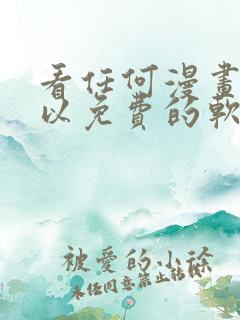 看任何漫畫
以免費的軟
被愛的小徐
未任同意禁止轉載